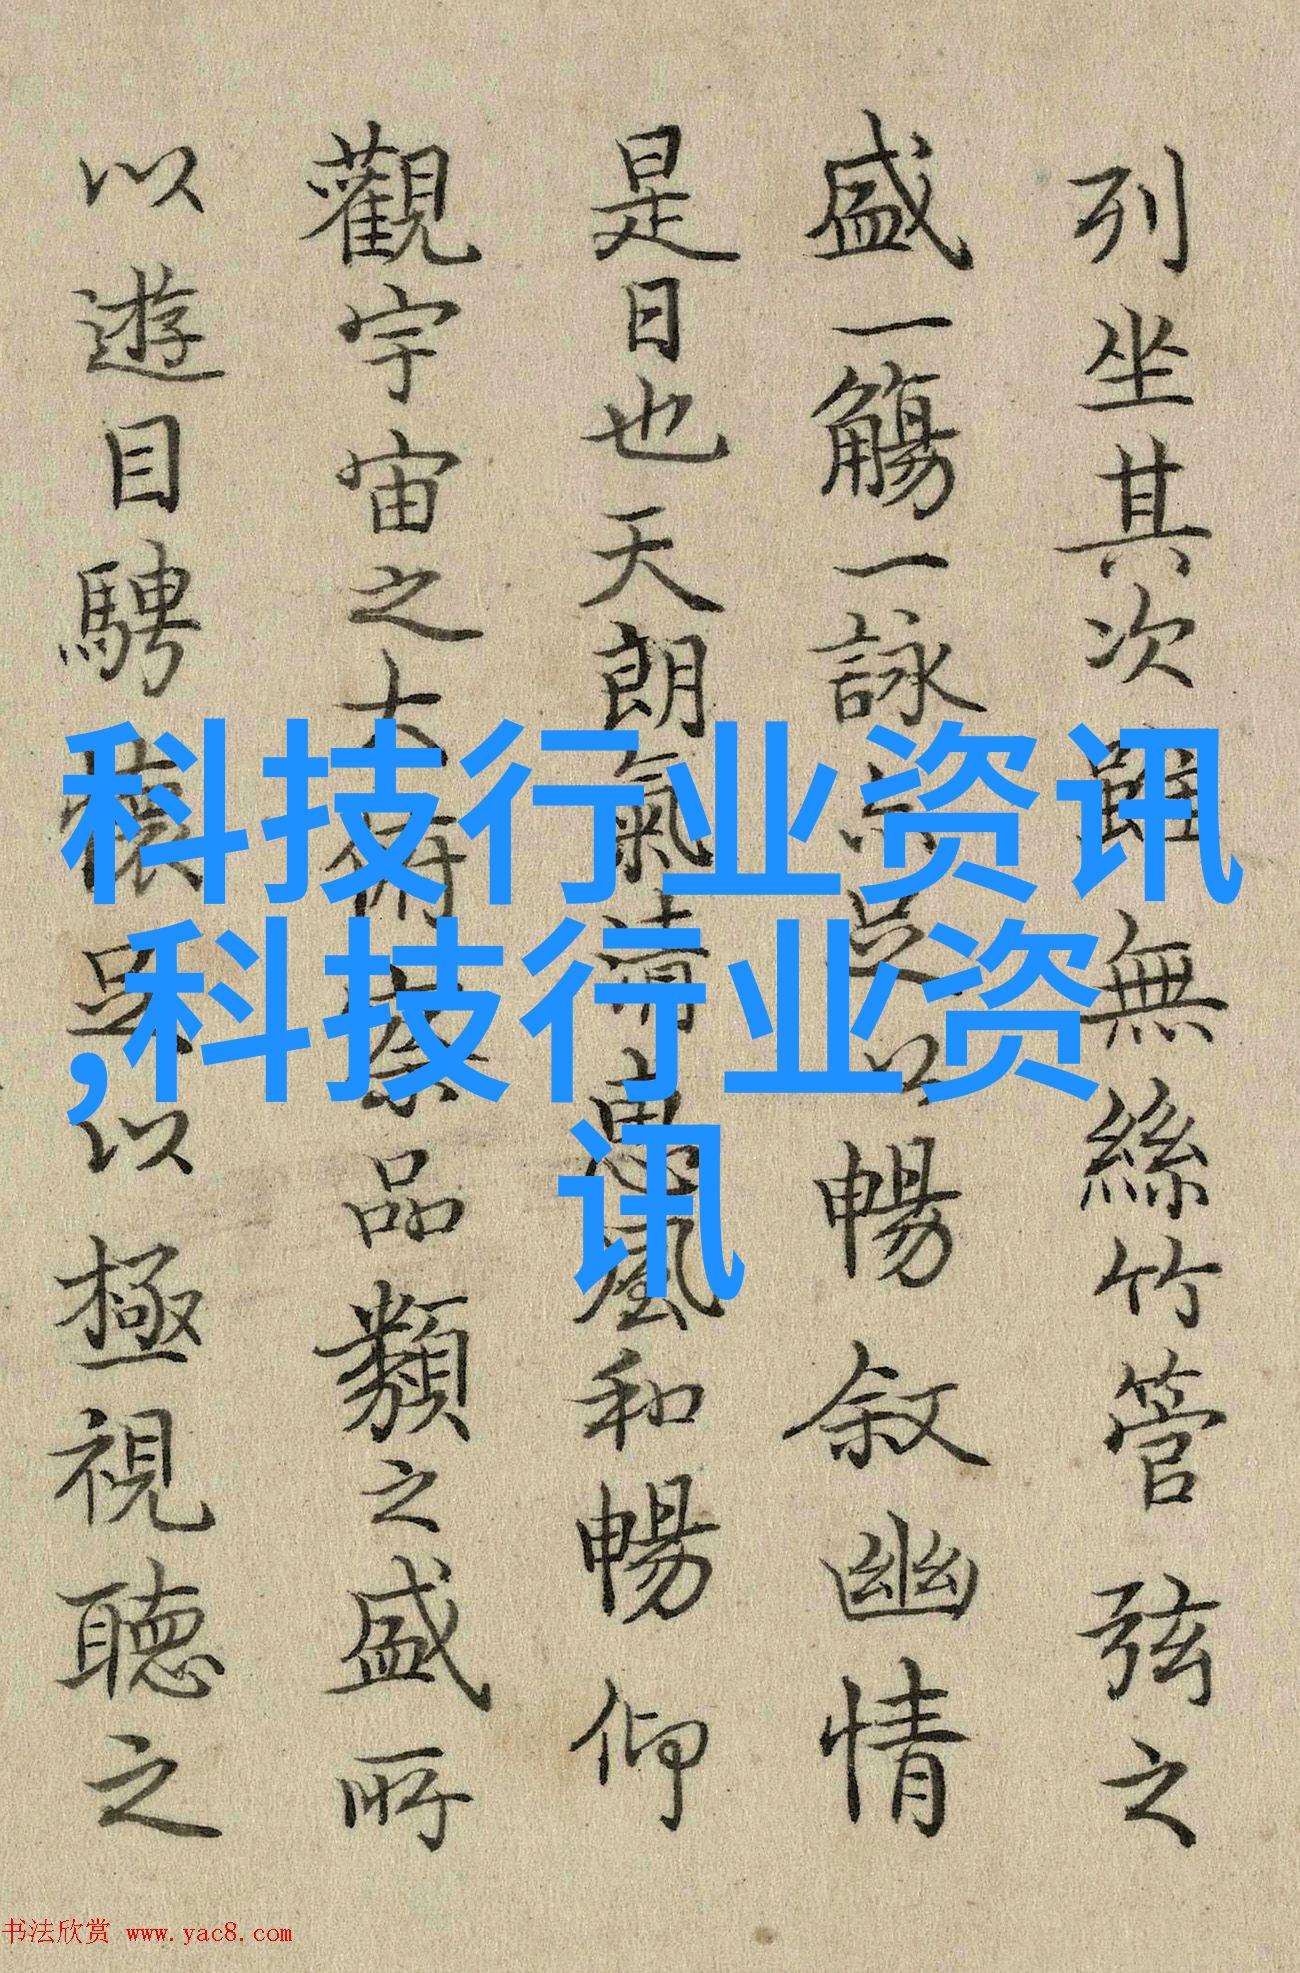 列坐其次雖無絲竹管弦之
盛一觴一詠亦足以暢叙幽情
是日也天朗氣清惠風和暢仰
觀宇宙之大俯察品類之盛所
以遊目騁懷足以極視聽之
科技行业资讯
,科技行业资
讯
书法欣赏 www.yac8.com